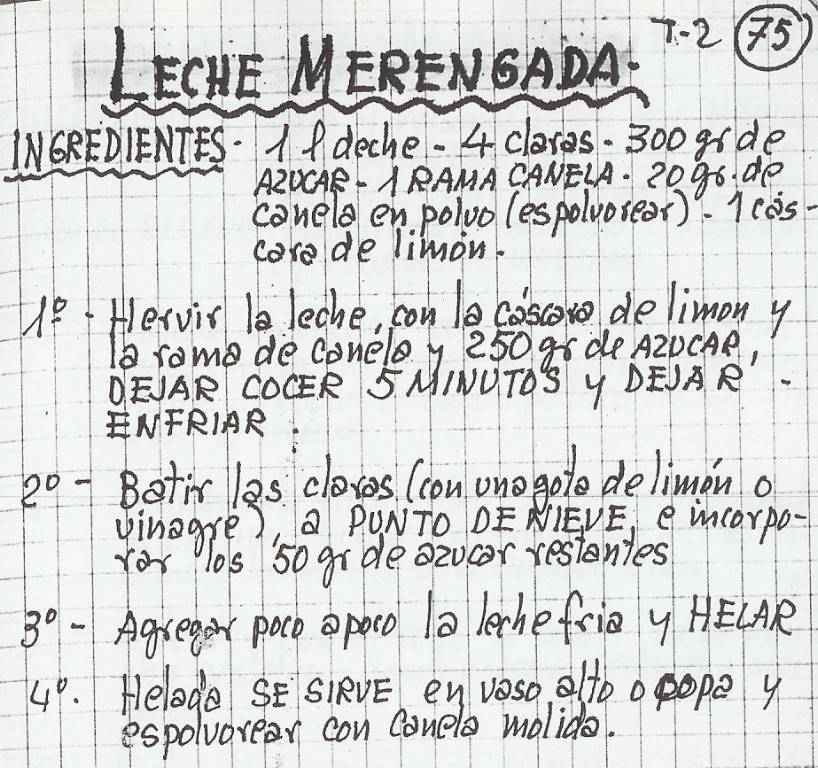 T-2 75
LECHE MERENGADA.
INGREDIENTES. 1 l deche - 4 claras - 300 gr de
AZUCAR - 1 RAMA CANELA. 20 gr. de
canela en polvo (espolvorear) - 1 cás-
cara de limón.
1º - Hervir la leche, con la cáscara de limon y
la rama de canela y 250 gr de AZUCAR,
DEJAR COCER 5 MINUTOS y DEJAR -
ENFRIAR.
2º - Batir las claras (con una gota de limón o
vinagre), a PUNTO DE NIEVE, e incorpo-
rar los 50 gr de azucar restantes
3º - Agregar poco apoco la leche fria y HELAR
4º. Helada SE SIRVE en vaso alto o copa y
espolvorear con canela molida.